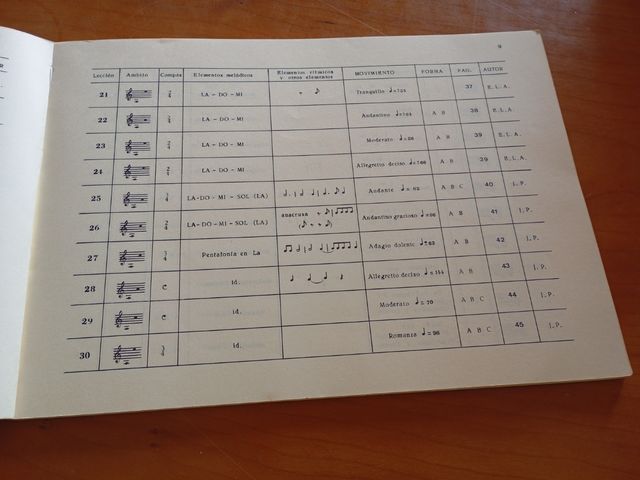 9
Lección Ambito Compás Elementos melódicos Elementos rítmicos y otros elementos MOVIMIENTO FORMA PAG. AUTOR
21 2/4 LA - DO - MI Tranquillo 37 E.L.A.
22 LA - DO - MI Andantino A B 38 E.L.A.
23 LA - DO - MI Moderato A B 39 E.L.A.
24 LA - DO - MI Allegretto deciso A B 39 E.L.A.
25 LA-DO - MI - SOL (LA) Andante A B C 40 J.P.
26 2/4 LA-DO - MI - SOL (LA) anacrusa Andantino grazioso A B 41 J.P.
27 3/4 Pentafonía en La Adagio dolente A B 42 J.P.
28 C id. Allegretto deciso A B 43 J.P.
29 C id. Moderato = 70 A B C 44 J.P.
30 3/4 id. Romanía = 96 A B C 45 J.P.